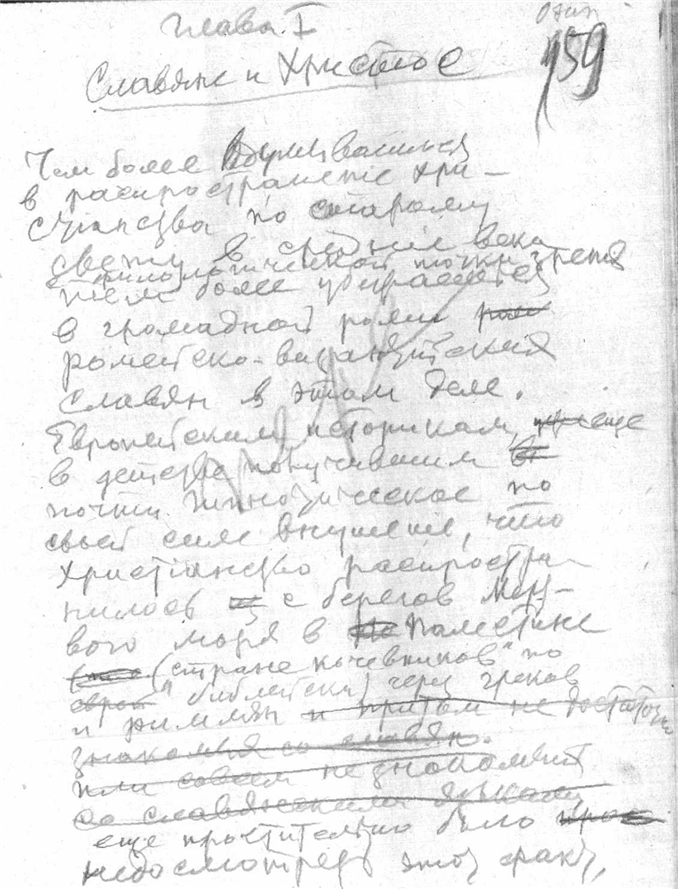 Глава I
159
Славяне и Христос
Чем более вдумываешься
в распространение хри-
стианства по старому
свету в средние века
с филологической точки зрения
тем более убеждаешься
в громадной роли роли
ромейско-византийских
славян в этом деле.
Европейским историкам, еще
в детстве получившим
почти гипнотическое по
своей силе внушение, что
христианство распростра-
нилось с берегов Мерт-
вого моря в Палестине
(„стране кочевников" по
библейски) через греков
и римлян и притом не достаточно
знакомых со славян.
или совсем не знакомым
со славянскими языками,
еще простительно было
недосмотреть этот факт,